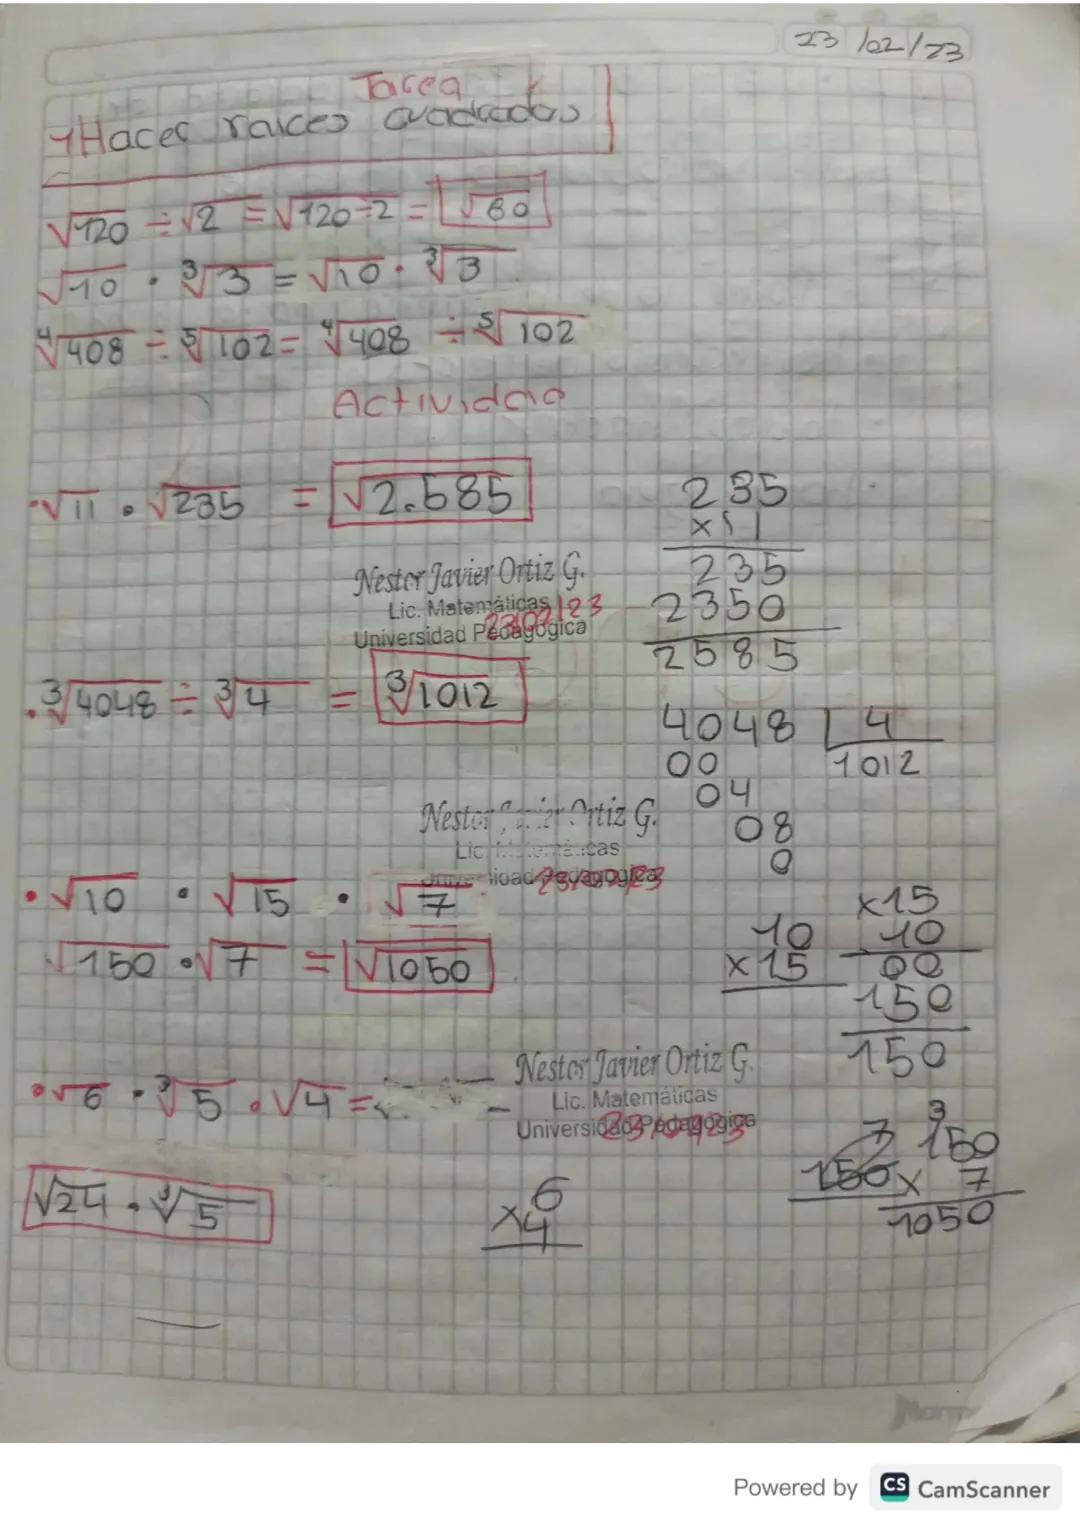 23/02/23
Tarea
Hacer raices cuadradas
√120 ÷ √2 = √120÷2 = √60
√10 · ³√3 = √10 · ³√3
⁴√408 ÷ ⁵√102 = ⁴√408 ÷ ⁵√102
Actividad
· √11 · √235 = √2.585
235
x11
235
2350
2585
Nestor Javier Ortiz G.
Lic. Matemáticas
Universidad Pedagógica
23/02/23
· ³√4048 ÷ ³√4 = ³√1012
4048 | 4
00 1012
04
08
0
Nestor Javier Ortiz G.
Lic. Matemáticas
Universidad Pedagógica
23/02/23
· √10 · √15 · √7
√150 · √7 = √1050
10
x15
x15
10
00
150
150
Nestor Javier Ortiz G.
Lic. Matemáticas
Universidad Pedagógica
23/02/23
· √6 · ³√5 · √4 =
√24 · ³√5
6
x4
7
150
3
150
x 7
1050
Norma
Powered by CS CamScanner